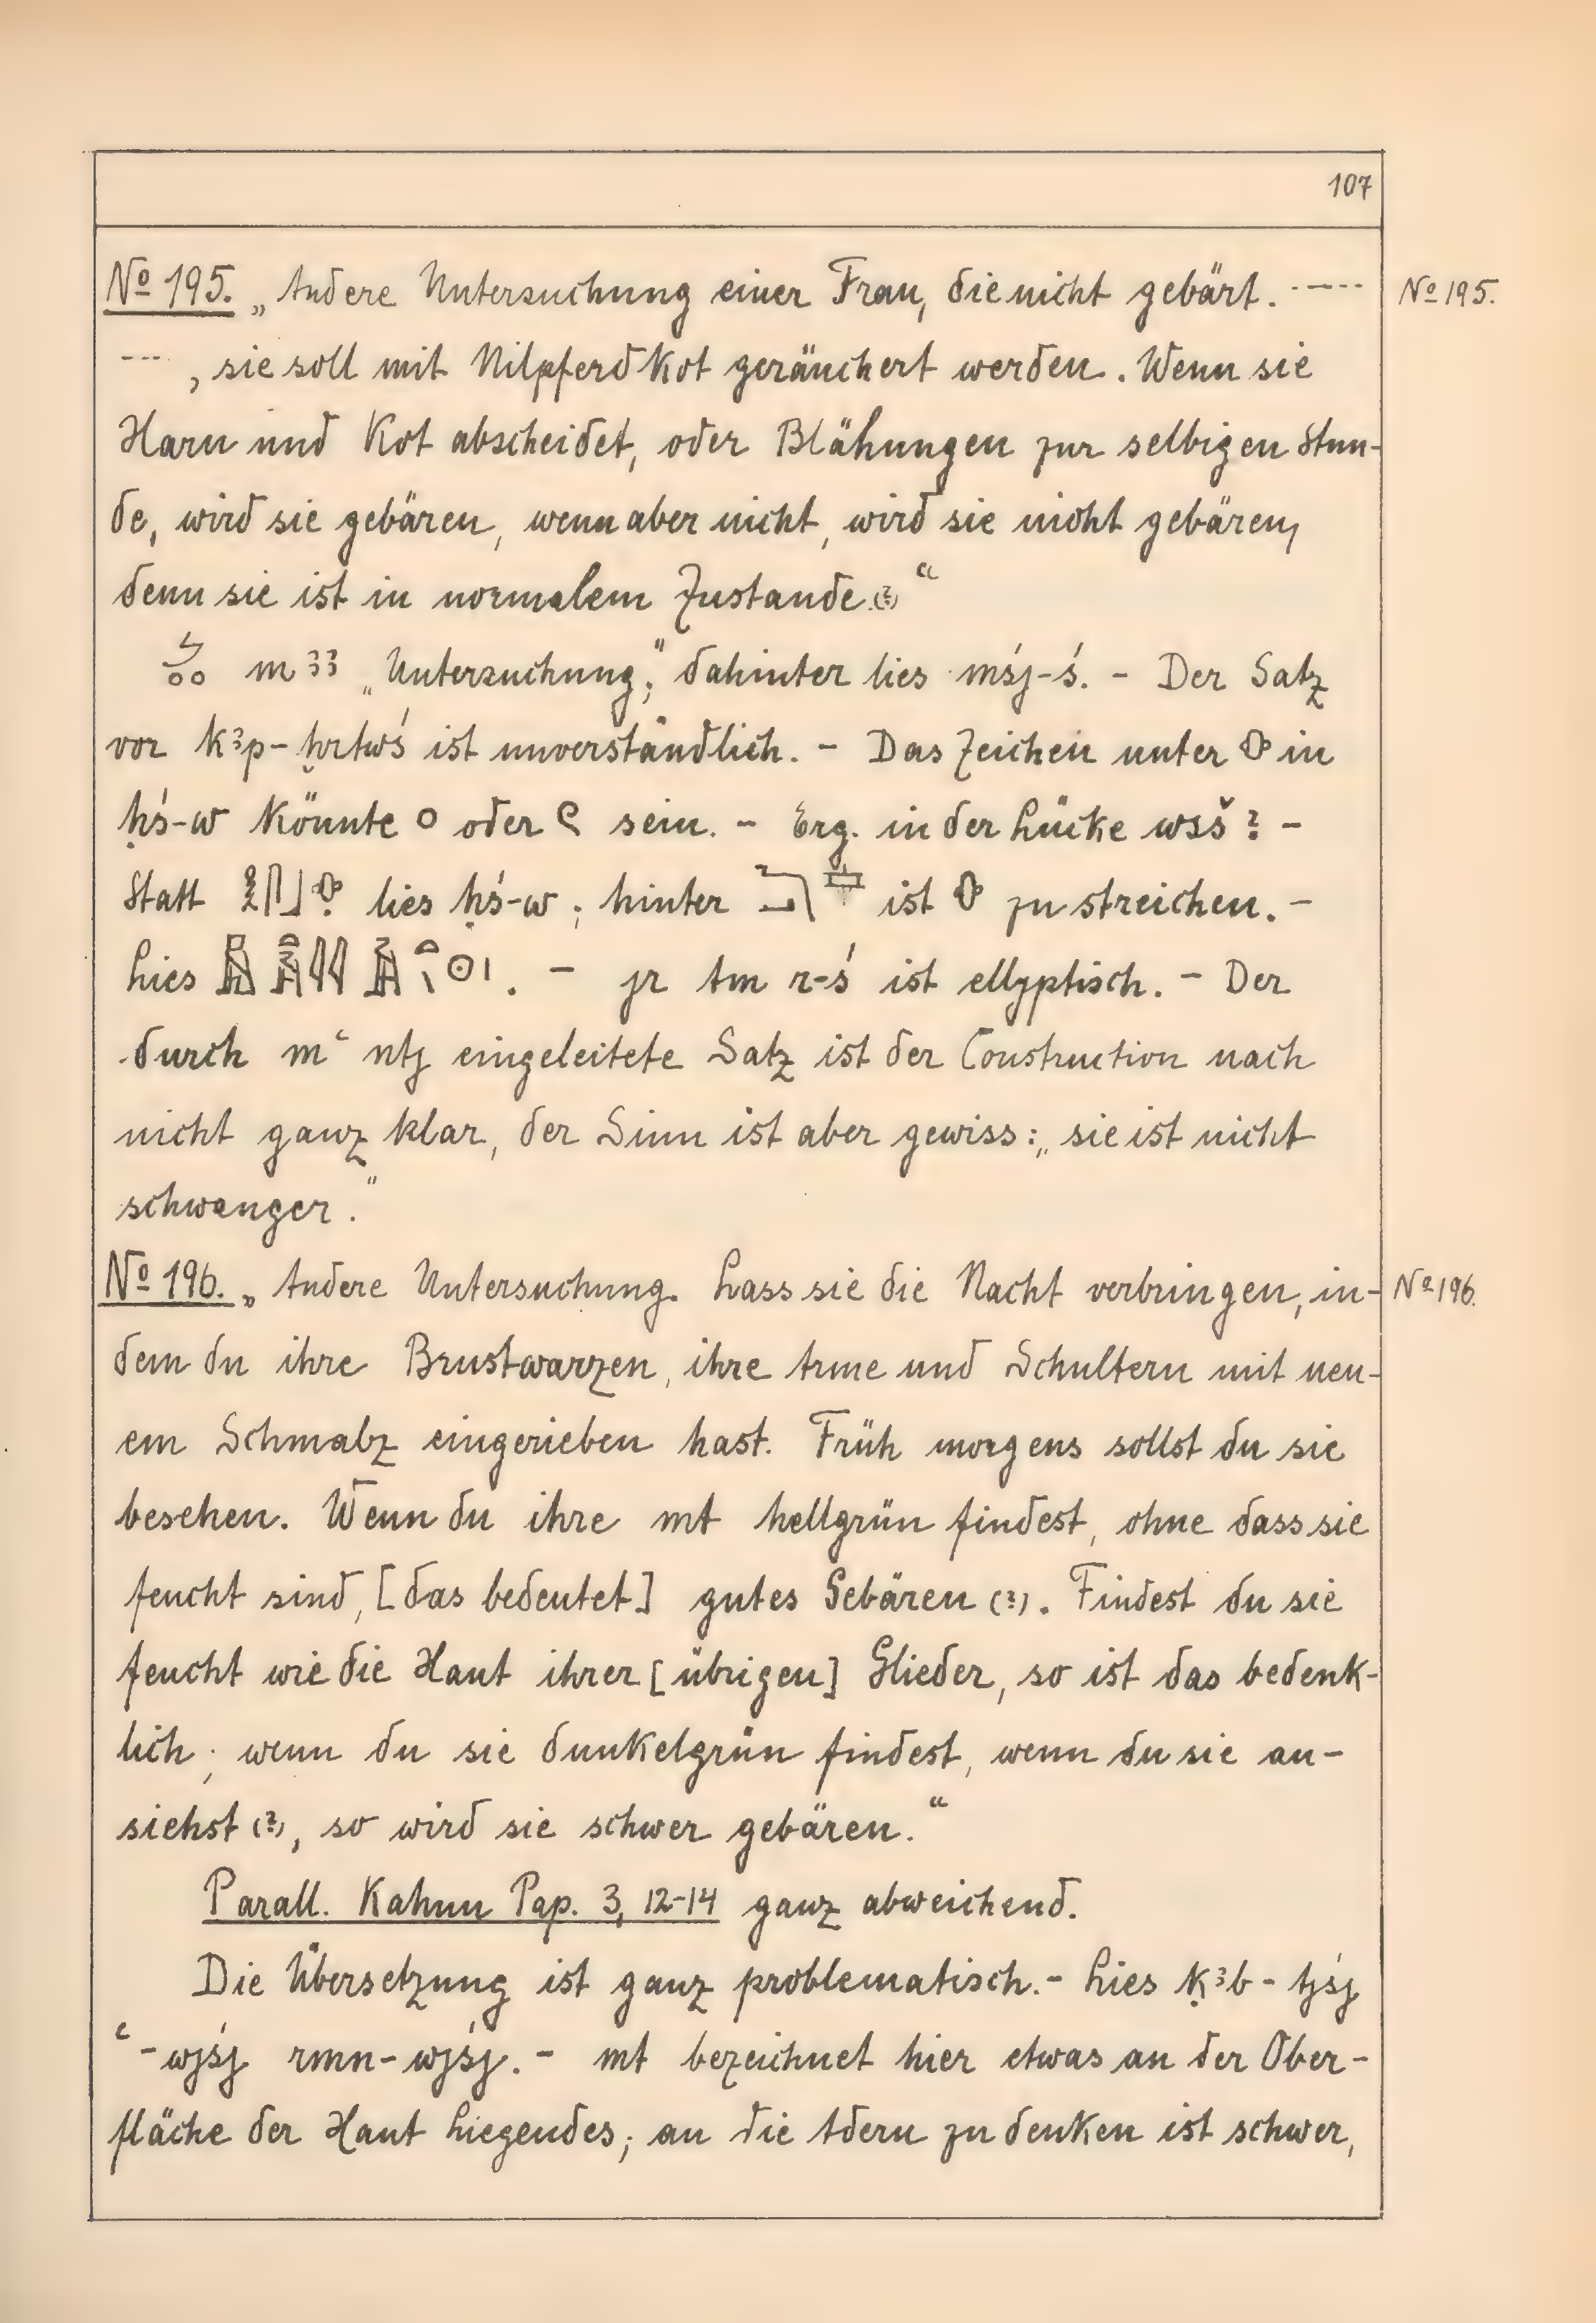 107
No 195. „Andere Untersuchung einer Frau, die nicht gebärt. ----- No 195.
---, sie soll mit Nilpferdkot geräuchert werden. Wenn sie
Harn und Kot abscheidet, oder Blähungen zur selbigen Stun-
de, wird sie gebären, wenn aber nicht, wird sie nicht gebären,
denn sie ist in normalem Zustande(?)“
m ꜣꜣ „Untersuchung“, dahinter lies mśj-ś. - Der Satz
vor kꜣp-ḫrtwś ist unverständlich. - Das Zeichen unter in
ḥś-w könnte oder sein. - Erg. in der Lücke wsš? -
Statt lies ḥś-w; hinter ist zu streichen. -
Lies . - jr tm r-ś ist ellyptisch. - Der
durch mꜥ ntj eingeleitete Satz ist der Construction nach
nicht ganz klar, der Sinn ist aber gewiss: „sie ist nicht
schwanger.“
No 196. „Andere Untersuchung. Lass sie die Nacht verbringen, in- No 196.
dem du ihre Brustwarzen, ihre Arme und Schultern mit neu-
em Schmalz eingerieben hast. Früh morgens sollst du sie
besehen. Wenn du ihre mt hellgrün findest, ohne dass sie
feucht sind, [das bedeutet] gutes Gebären (?). Findest du sie
feucht wie die Haut ihrer [übrigen] Glieder, so ist das bedenk-
lich; wenn du sie dunkelgrün findest, wenn du sie an-
siehst (?), so wird sie schwer gebären.“
Parall. Kahun Pap. 3, 12-14 ganz abweichend.
Die Übersetzung ist ganz problematisch. - Lies ḳꜣb-tjśj
ꜥ-wjśj rmn-wjśj. - mt bezeichnet hier etwas an der Ober-
fläche der Haut Liegendes; an die Adern zu denken ist schwer,